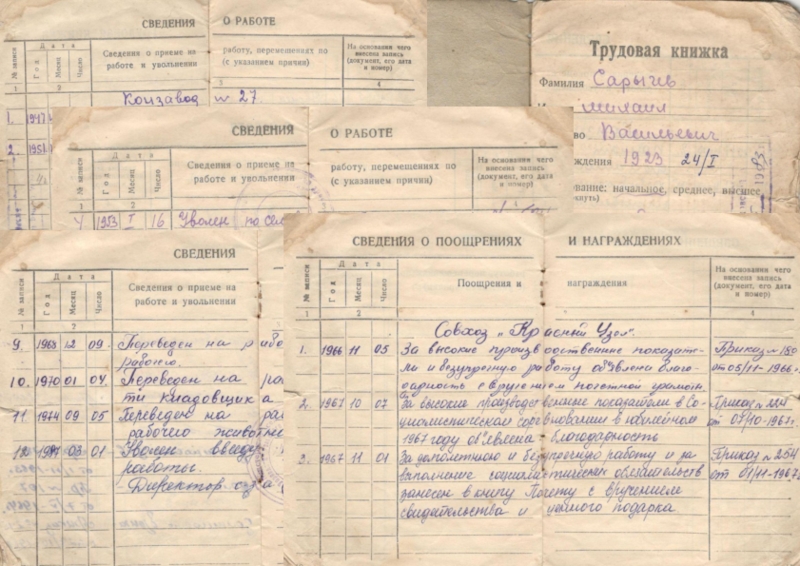 СВЕДЕНИЯ О РАБОТЕ
№ записи
Дата
Год
Месяц
Число
Сведения о приеме на работу, перемещениях по
работе и увольнении (с указанием причин)
На основании чего
внесена запись
(документ, его дата
и номер)
1 2 3 4
Конзавод № 27.
1. 1947
2. 1951
Трудовая книжка
Фамилия Сарычев
Михаил
во Васильевич
ждения 1923 24/I
ование: начальное, среднее, высшее
кнуть)
СВЕДЕНИЯ О РАБОТЕ
№ записи
Дата
Год
Месяц
Число
Сведения о приеме на работу, перемещениях по
работе и увольнении (с указанием причин)
На основании чего
внесена запись
(документ, его дата
и номер)
1 2 3 4
1953 I 16 Уволен по
СВЕДЕНИЯ
№ записи
Дата
Год
Месяц
Число
Сведения о приеме на
работе и увольнении
1 2
9. 1968 12 09. Переведен на
рабочего.
10. 1970 01 04. Переведен на
ти кладовщика
11 1974 09 05 Переведен на
рабочего
12 03 01 Уволен ввиду
работы.
- Директор
СВЕДЕНИЯ О ПООЩРЕНИЯХ И НАГРАЖДЕНИЯХ
№ записи
Дата
Год
Месяц
Число
Поощрения и награждения
На основании чего
внесена запись
(документ, его дата
и номер)
1 2 3 4
Совхоз „Красный Узел".
1. 1966 11 05 За высокие производственные показате- Приказ № 180
ли и безупречную работу объявлена благо- от 05/11-1966 г.
дарность с вручением почетной грамоты.
2. 1967 10 07 За высокие производственные показатели в Со- Приказ № 221
циалистическом соревновании в юбилейном от 07/10-1967г.
1967 году объявлена благодарность
3. 1967 11 01 За долголетнюю и безупречную работу и за Приказ № 254
выполнение социалистических обязательств от 01/11-1967
занесен в книгу Почета с вручением
свидетельства и ценного подарка